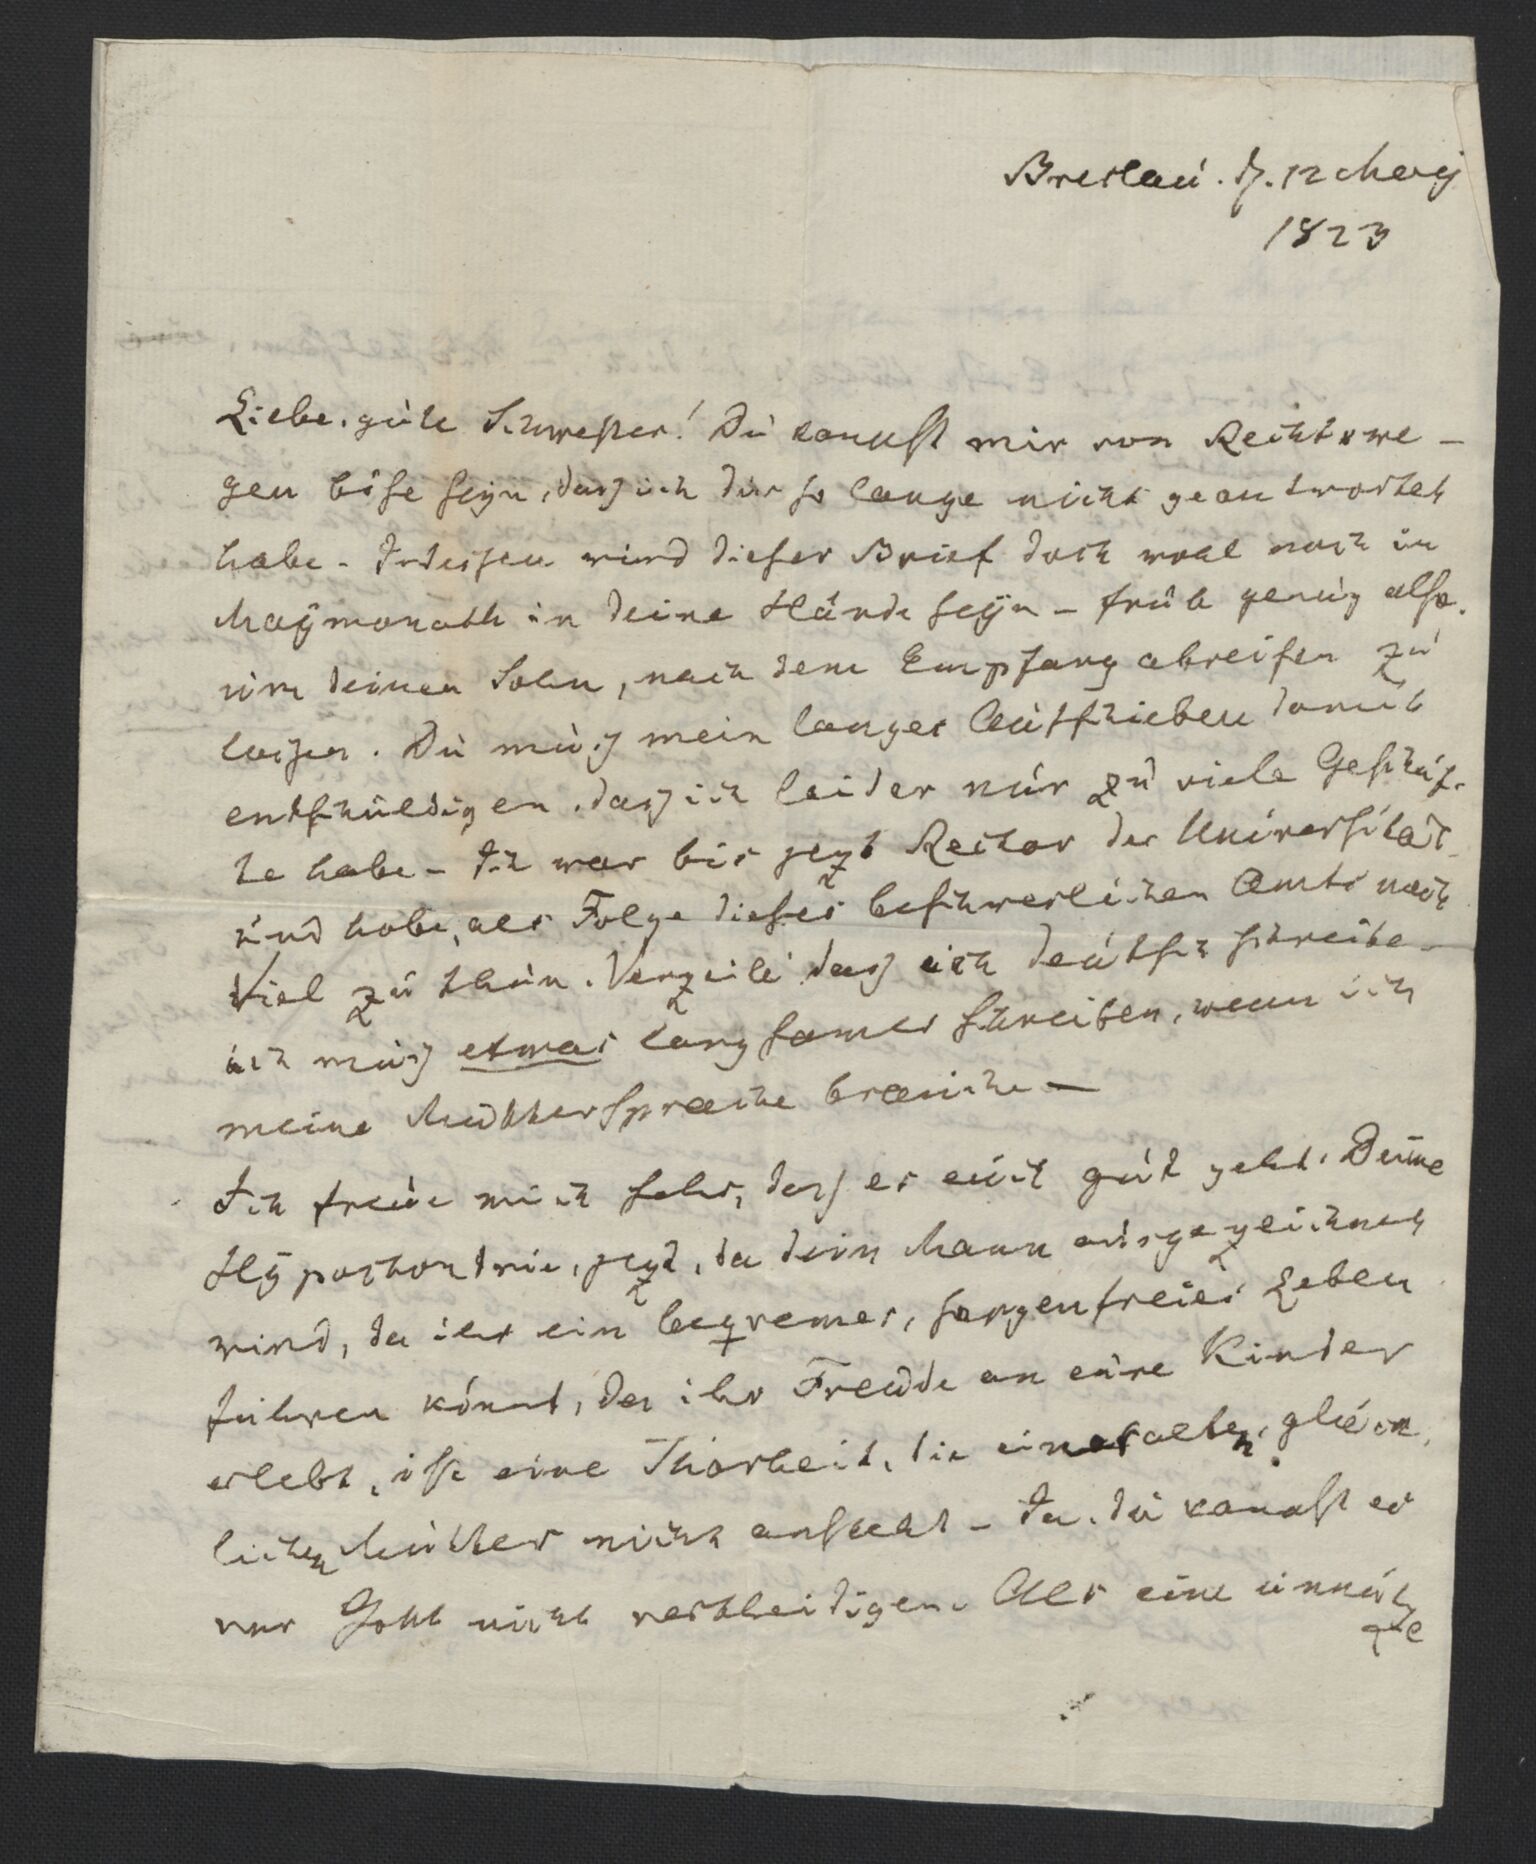 Breslau. d. 12 May
1823
Liebe, gute Schwester! Du kannst mir von Rechtswe-
gen böse seyn, dasz ich dir so lange nicht geantwortet
habe - Indessen wird dieser Brief doch wohl noch im
Maymonath in deine Hände seyn - früh genug also,
um deinen Sohn, nach dem Empfang abreisen zu
lassen. Du musz mein langes Aufschieben damit
entschuldigen, dasz ich leider nur zu viele Geschäf-
te habe - Ich war bis jezt Rector der Universität
und habe, als Folge dieses beschwerlichen Amts noch
Viel zu thun. Verzeih dasz ich deutsch schreibe -
ich musz etwas langsamer schreiben, wenn ich
meine Muttersprache brauche -
Ich freue mich sehr, dasz es euch gut geht. Deine
Hypochondrie, jezt, da dein Mann ausgezeichnet
wird, da ihr ein beqvemes, sorgenfreies Leben
führen könnt, da ihr Freude an eure Kinder
erlebt, ist eine Thorheit, die einer alten, glück-
lichen Mutter nicht ansteht - Ja, du kannst es
vor Gott nicht vertheidigen. Als eine unnüt
ze